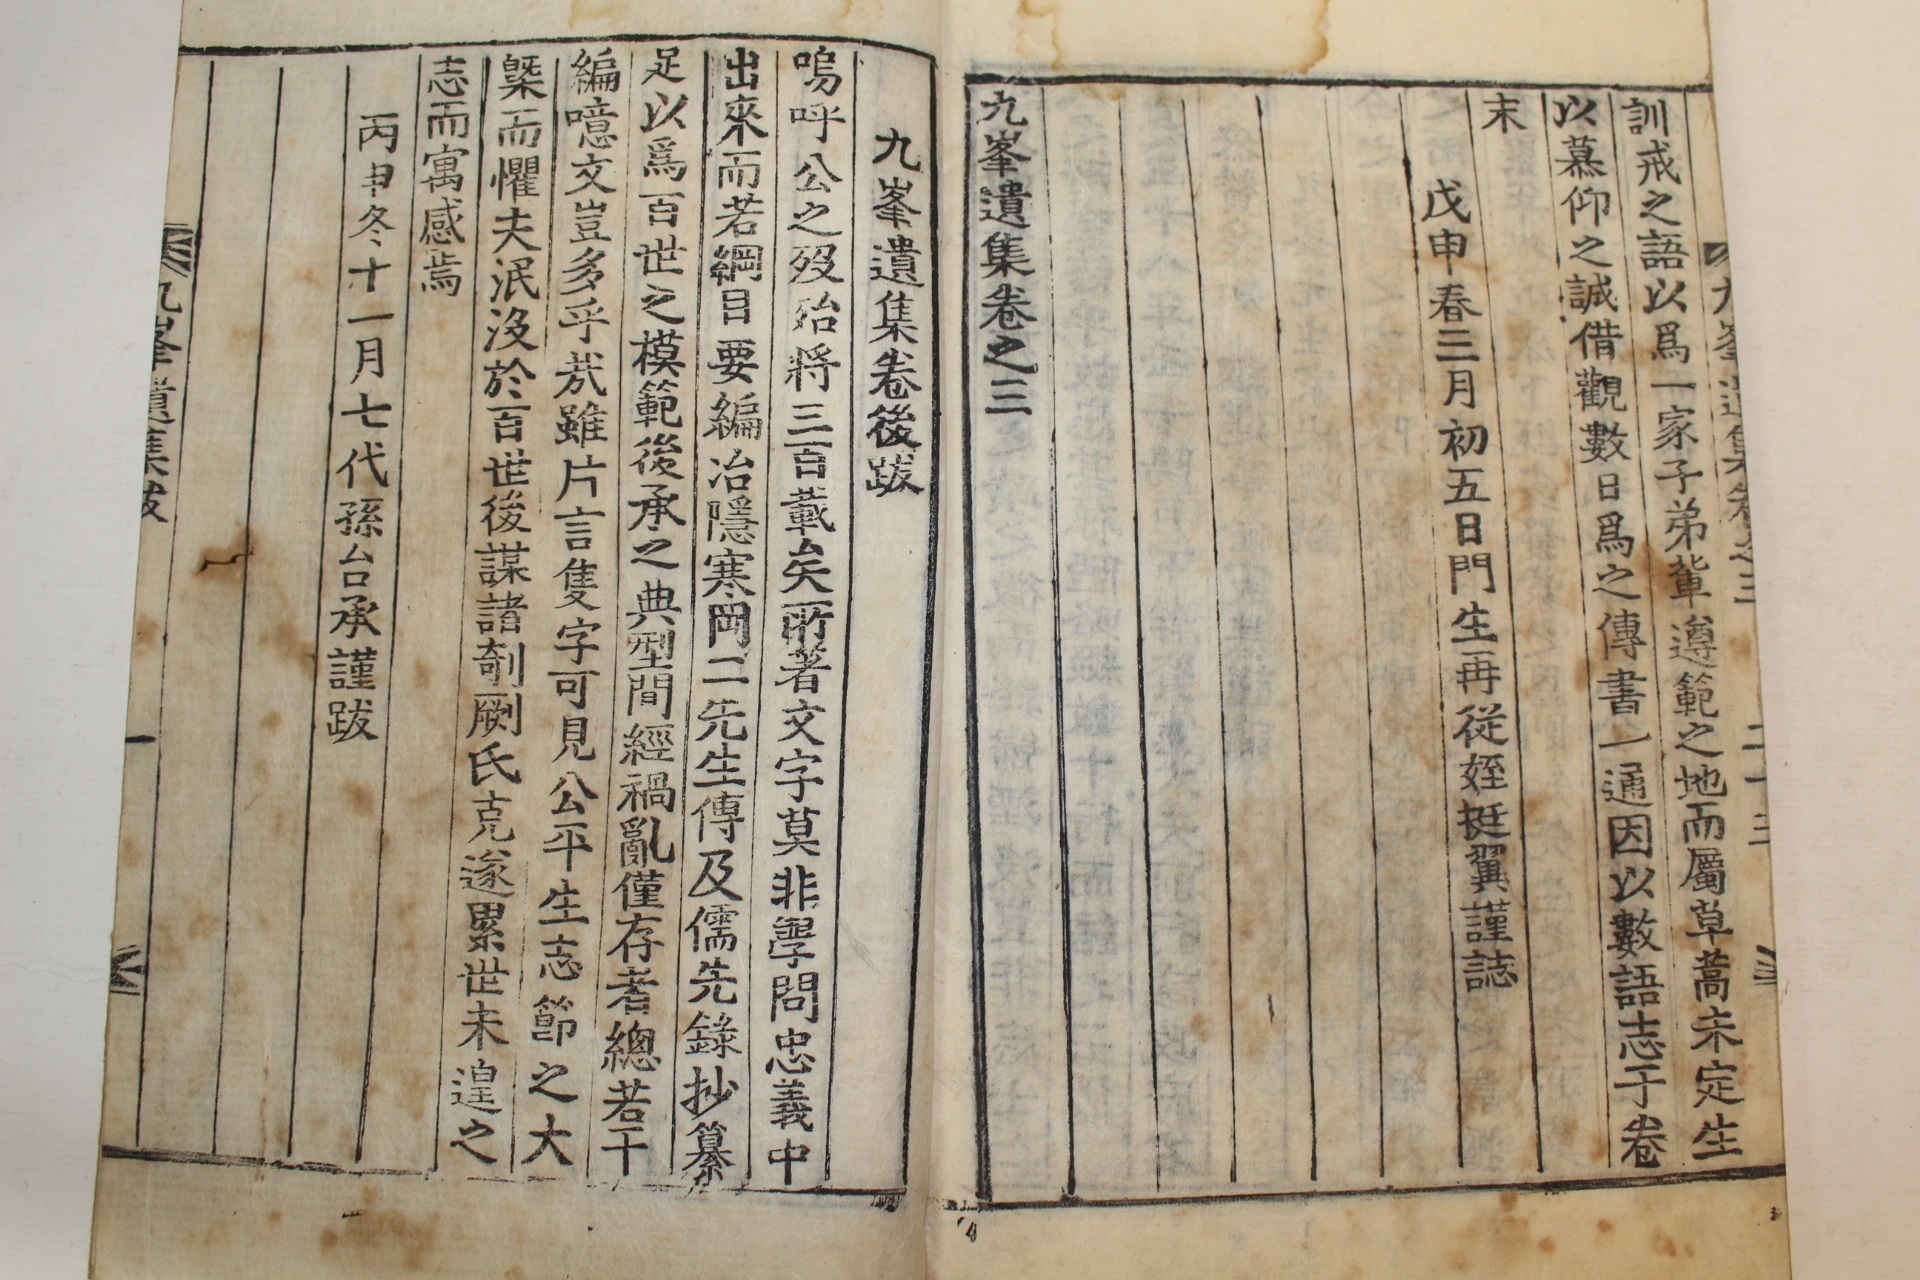 九峯遺集卷之三 二十三
訓戒之語以爲一家子弟輩遵範之地而屬草蒿未定生
以慕仰之誠借觀數日爲之傳書一通因以數語志于卷
末
戊申春三月初五日門生再從姪挺翼謹誌
九峯遺集卷之三
九峯遺集卷後跋
嗚呼公之歿殆將三百載矣所著文字莫非學問忠義中
出來而若綱目要編冶隱寒岡二先生傳及儒先錄抄纂
足以爲百世之模範後承之典型間經禍亂僅存者總若干
編噫文豈多乎㢤雖片言隻字可見公平生志節之大
槩而懼夫泯沒於百世後謀諸剞劂氏克遂累世未遑之
志而寓感焉
丙申冬十一月七代孫台承謹跋
九峯遺集跋 一